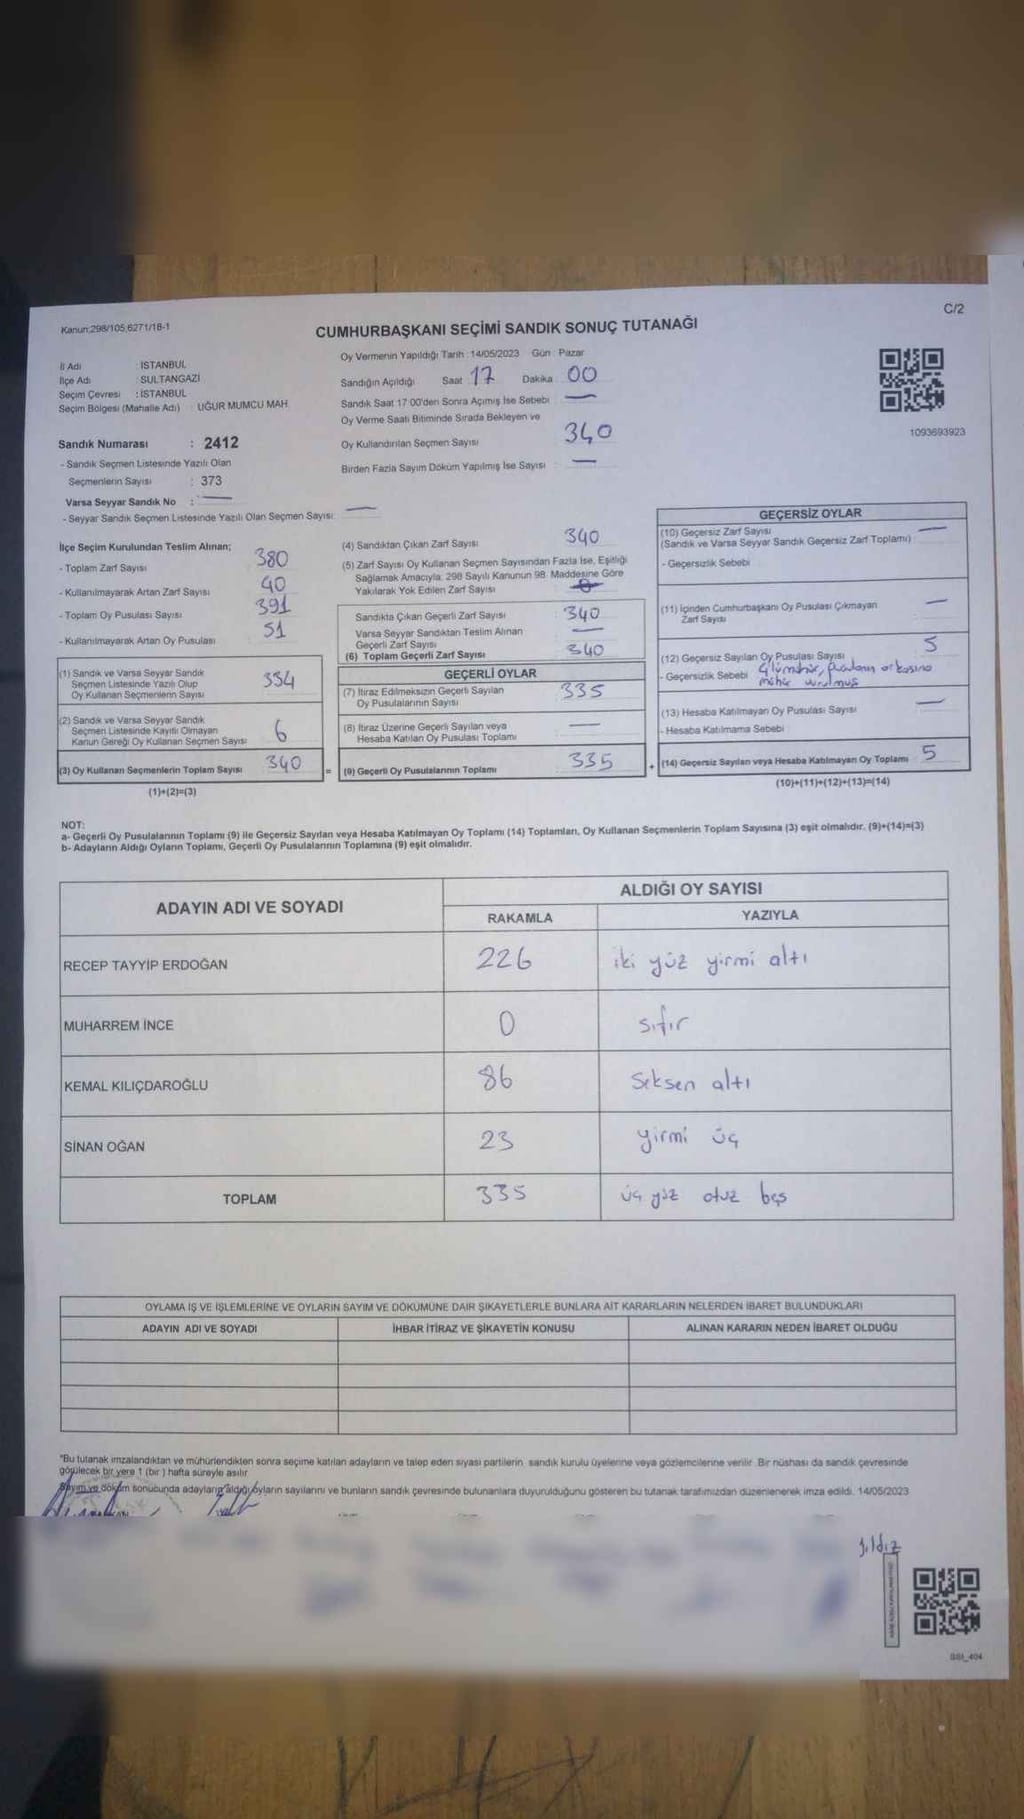 Kanun:298/105,6271/18-1
C/2
CUMHURBAŞKANI SEÇİMİ SANDIK SONUÇ TUTANAĞI
İl Adı : İSTANBUL
İlçe Adı : SULTANGAZİ
Seçim Çevresi : İSTANBUL
Seçim Bölgesi (Mahalle Adı) : UĞUR MUMCU MAH.
Sandık Numarası : 2412
- Sandık Seçmen Listesinde Yazılı Olan
Seçmenlerin Sayısı : 373
Varsa Seyyar Sandık No : —
- Seyyar Sandık Seçmen Listesinde Yazılı Olan Seçmen Sayısı: —
Oy Vermenin Yapıldığı Tarih : 14/05/2023 Gün : Pazar
Sandığın Açıldığı Saat : 17 Dakika : 00
Sandık Saat 17:00'den Sonra Açımış İse Sebebi : —
Oy Verme Saati Bitiminde Sırada Bekleyen ve
Oy Kullandırılan Seçmen Sayısı : 340
Birden Fazla Sayım Döküm Yapılmış İse Sayısı : —
1093693923
İlçe Seçim Kurulundan Teslim Alınan;
- Toplam Zarf Sayısı 380
- Kullanılmayarak Artan Zarf Sayısı 40
- Toplam Oy Pusulası Sayısı 391
- Kullanılmayarak Artan Oy Pusulası 51
(1) Sandık ve Varsa Seyyar Sandık
Seçmen Listesinde Yazılı Olup
Oy Kullanan Seçmenlerin Sayısı 334
(2) Sandık ve Varsa Seyyar Sandık
Seçmen Listesinde Kayıtlı Olmayan
Kanun Gereği Oy Kullanan Seçmen Sayısı 6
(3) Oy Kullanan Seçmenlerin Toplam Sayısı 340
(1)+(2)=(3)
(4) Sandıktan Çıkan Zarf Sayısı 340
(5) Zarf Sayısı Oy Kullanan Seçmen Sayısından Fazla İse, Eşitliği
Sağlamak Amacıyla, 298 Sayılı Kanunun 98. Maddesine Göre
Yakılarak Yok Edilen Zarf Sayısı
Sandıkta Çıkan Geçerli Zarf Sayısı 340
Varsa Seyyar Sandıktan Teslim Alınan
Geçerli Zarf Sayısı —
(6) Toplam Geçerli Zarf Sayısı 340
GEÇERLİ OYLAR
(7) İtiraz Edilmeksizin Geçerli Sayılan
Oy Pusulalarının Sayısı 335
(8) İtiraz Üzerine Geçerli Sayılan veya
Hesaba Katılan Oy Pusulası Toplamı —
= (9) Geçerli Oy Pusulalarının Toplamı 335
GEÇERSİZ OYLAR
(10) Geçersiz Zarf Sayısı —
(Sandık ve Varsa Seyyar Sandık Geçersiz Zarf Toplamı)
- Geçersizlik Sebebi
(11) İçinden Cumhurbaşkanı Oy Pusulası Çıkmayan —
Zarf Sayısı
(12) Geçersiz Sayılan Oy Pusulası Sayısı 5
- Geçersizlik Sebebi arkasına
mühür vurulmuş
(13) Hesaba Katılmayan Oy Pusulası Sayısı —
- Hesaba Katılmama Sebebi
+ (14) Geçersiz Sayılan veya Hesaba Katılmayan Oy Toplamı 5
(10)+(11)+(12)+(13)=(14)
NOT:
a- Geçerli Oy Pusulalarının Toplamı (9) ile Geçersiz Sayılan veya Hesaba Katılmayan Oy Toplamı (14) Toplamları, Oy Kullanan Seçmenlerin Toplam Sayısına (3) eşit olmalıdır. (9)+(14)=(3)
b- Adayların Aldığı Oyların Toplamı, Geçerli Oy Pusulalarının Toplamına (9) eşit olmalıdır.
ADAYIN ADI VE SOYADI ALDIĞI OY SAYISI
RAKAMLA YAZIYLA
RECEP TAYYİP ERDOĞAN 226 iki yüz yirmi altı
MUHARREM İNCE 0 sıfır
KEMAL KILIÇDAROĞLU 86 Seksen altı
SİNAN OĞAN 23 yirmi üç
TOPLAM 335 üç yüz otuz beş
OYLAMA İŞ VE İŞLEMLERİNE VE OYLARIN SAYIM VE DÖKÜMÜNE DAİR ŞİKAYETLERLE BUNLARA AİT KARARLARIN NELERDEN İBARET BULUNDUKLARI
ADAYIN ADI VE SOYADI İHBAR İTİRAZ VE ŞİKAYETİN KONUSU ALINAN KARARIN NEDEN İBARET OLDUĞU
"Bu tutanak imzalandıktan ve mühürlendikten sonra seçime katılan adayların ve talep eden siyasi partilerin sandık kurulu üyelerine veya gözlemcilerine verilir. Bir nüshası da sandık çevresinde
görülecek bir yere 1 (bir ) hafta süreyle asılır.
Sayım ve döküm sonucunda adayların aldığı oyların sayılarını ve bunların sandık çevresinde bulunanlara duyurulduğunu gösteren bu tutanak tarafımızdan düzenlenerek imza edildi. 14/05/2023
yıldız